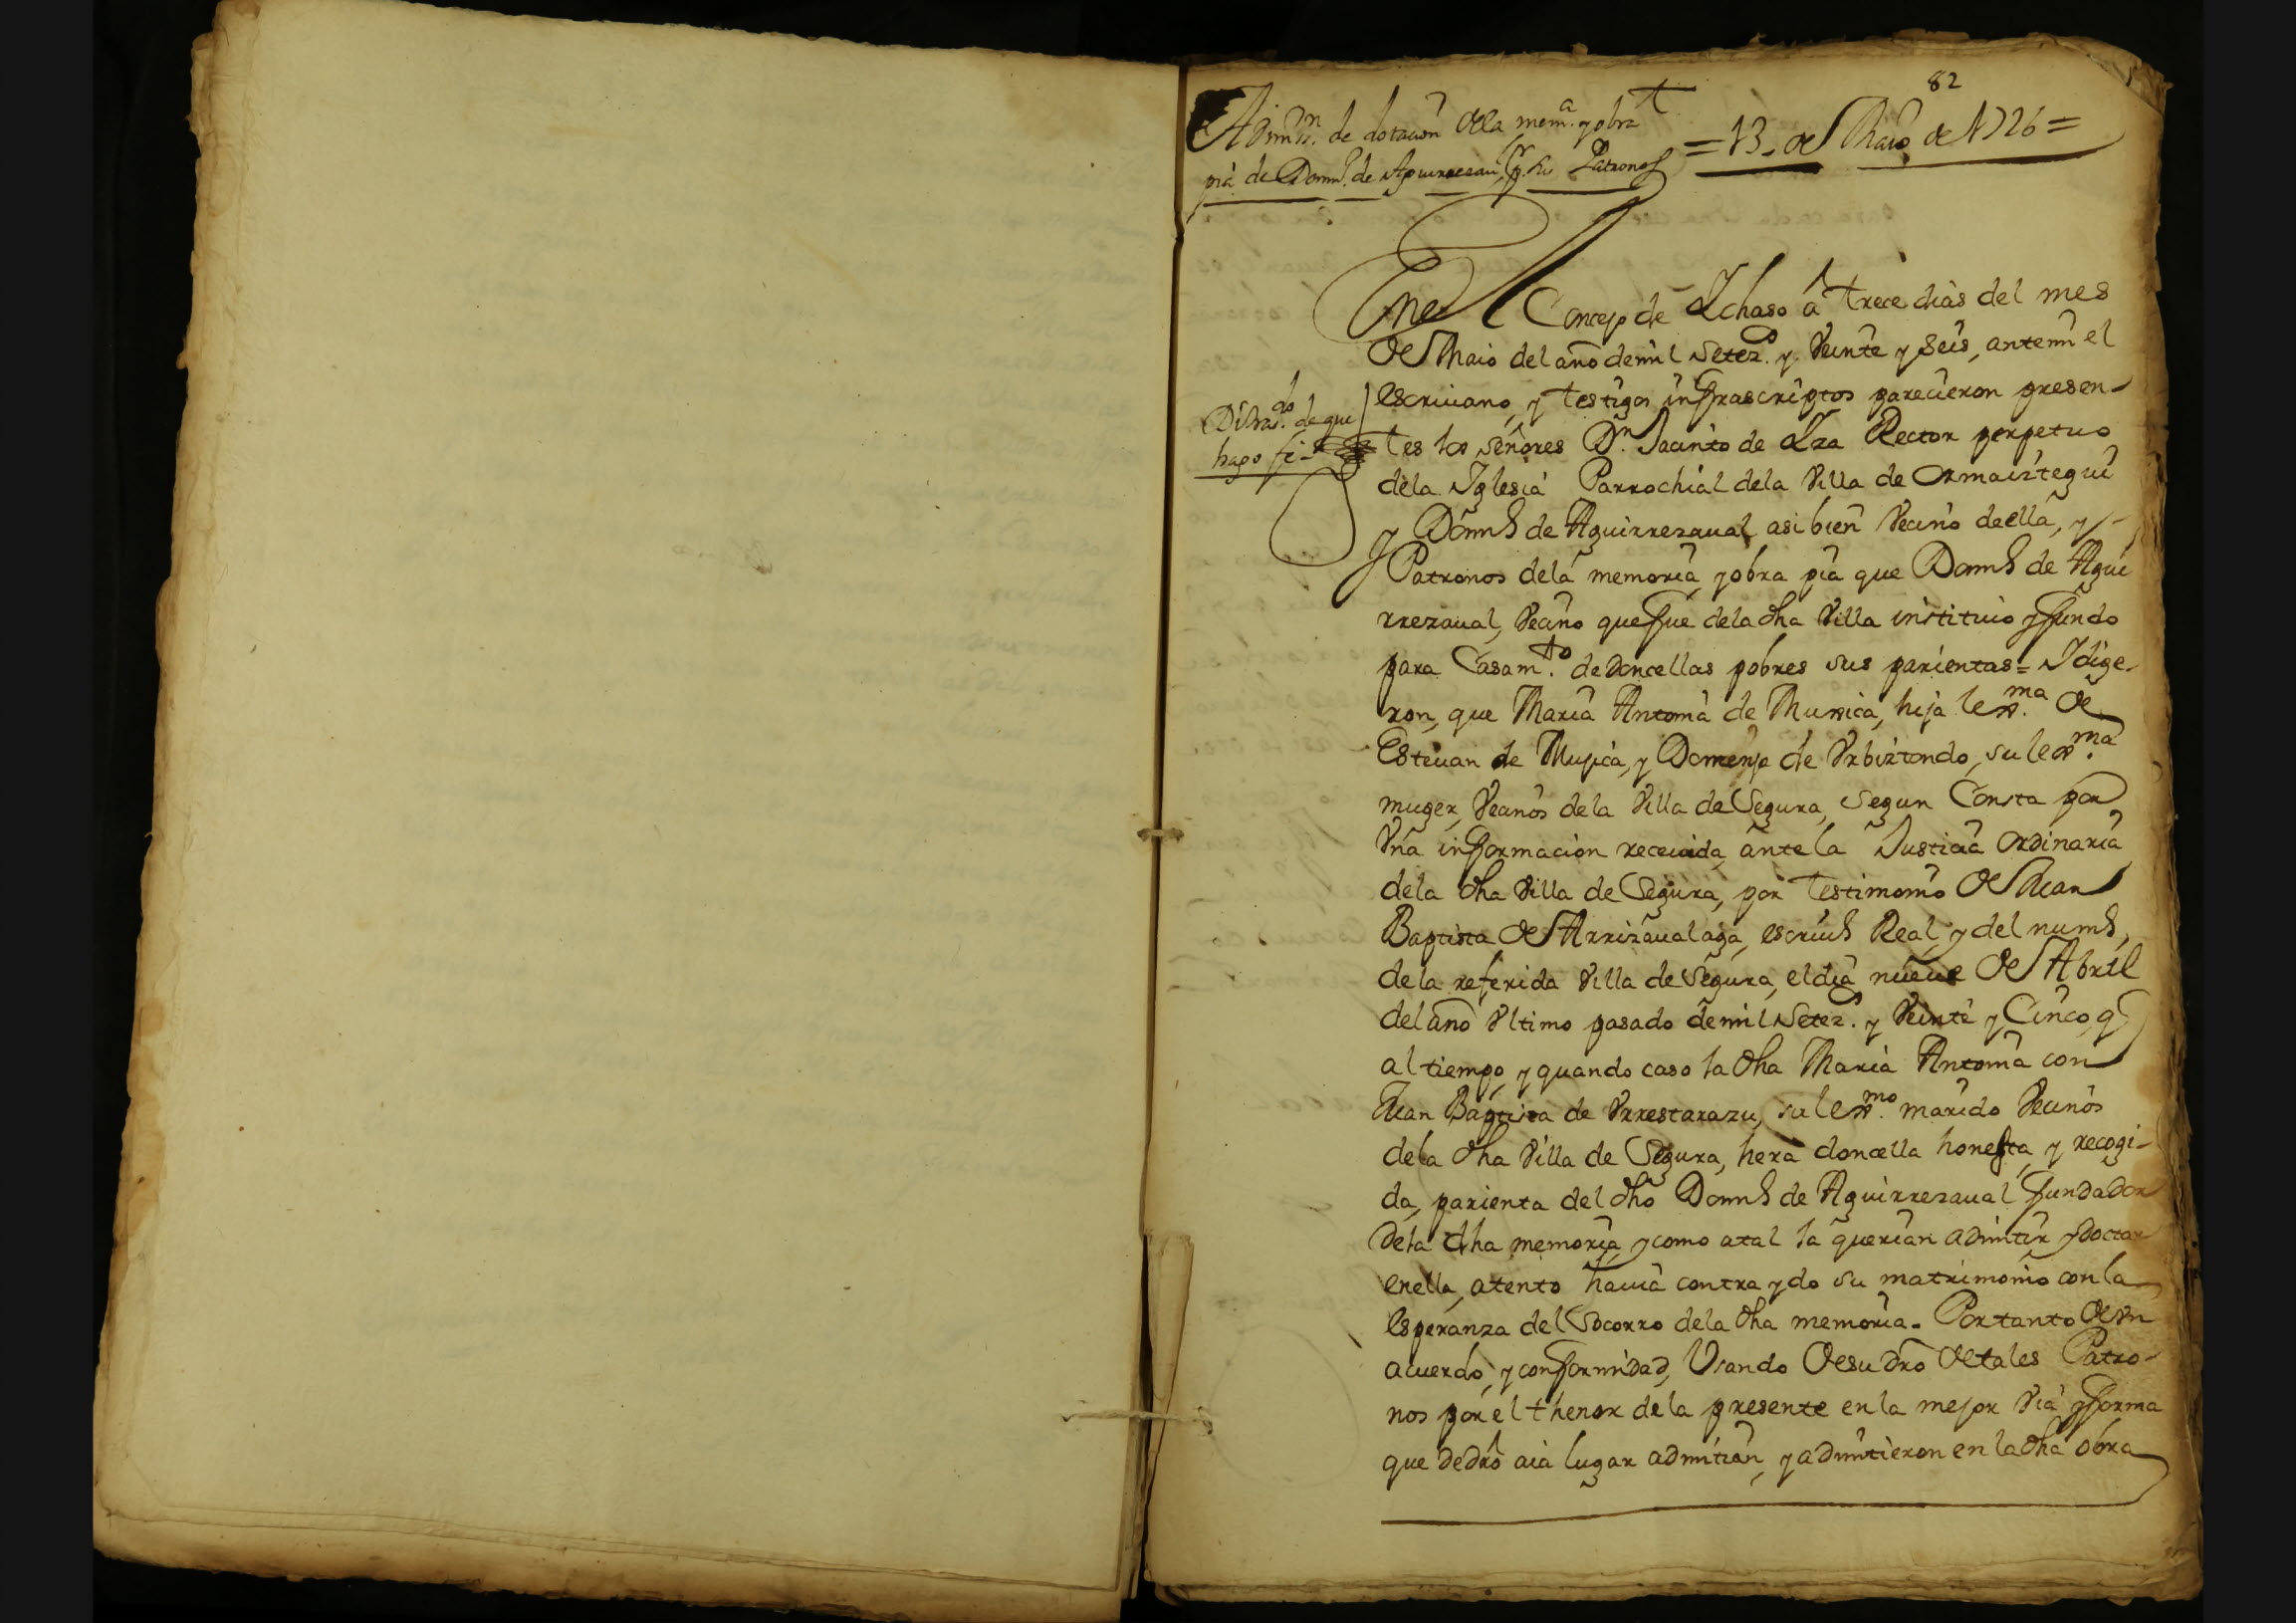 82
Admiss.n de dotacion de la mem.a y obra
pia de Dom.o de Aguirrezaual, p.r sus Patronos
= 13. de Maio de 1726 =
En el Concejo de Ychaso á trece dias del mes
de Maio del año de mil setez.os y Veinte y seis, ante mi el
escriuano, y testigos infrascriptos parecieron presen-
tes los señores D.n Jacinto de Yza Rector perpetuo
de la Iglesia Parrochial dela Villa de Ormaiztegui
y Domi.o de Aguirrezaual asi bien Vecino de ella, y
Patronos dela memoria, y obra pia que Domi.o de Agui
rrezaual, Vecino que fue dela dha Villa instituio y fundo
para Casam.to de doncellas pobres sus parientas = Y dige-
ron, que Maria Antonia de Muxica, hija lex.ma de
Esteuan de Mujica, y Domenja de Vrbiztondo, su lex.ma
muger, Vecinos dela Villa de Segura, segun Consta por
Vna informacion receuida, ante la Justicia Ordinaria
dela dha Villa de Segura, por testimonio de Juan
Baptista de Arrizaualaga, escriu.o Real, y del num.o,
de la referida Villa de Segura, el dia nueue de Abril
del año Vltimo pasado de mil setez.os y Veinte y Cinco, q
al tiempo, y quando caso la dha Maria Antonia con
Juan Baptista de Vrrestarazu, su lex.mo marido Vecinos
dela dha Villa de Segura, hera doncella honesta, y recogi-
da, parienta del dho Domi.o de Aguirrezaual fundador
dela dha memoria, y como a tal la querian admitir y doctar
en ella, atento hauia contraydo su matrimonio con la
esperanza del Socorro dela dha memoria. Por tanto de vn
acuerdo, y conformidad, Vsando de su dro de tales Patro-
nos por el thenor de la presente en la mejor Via y forma
que de dro aia lugar admitian, y admitieron en la dha obra
do de que
hago fe